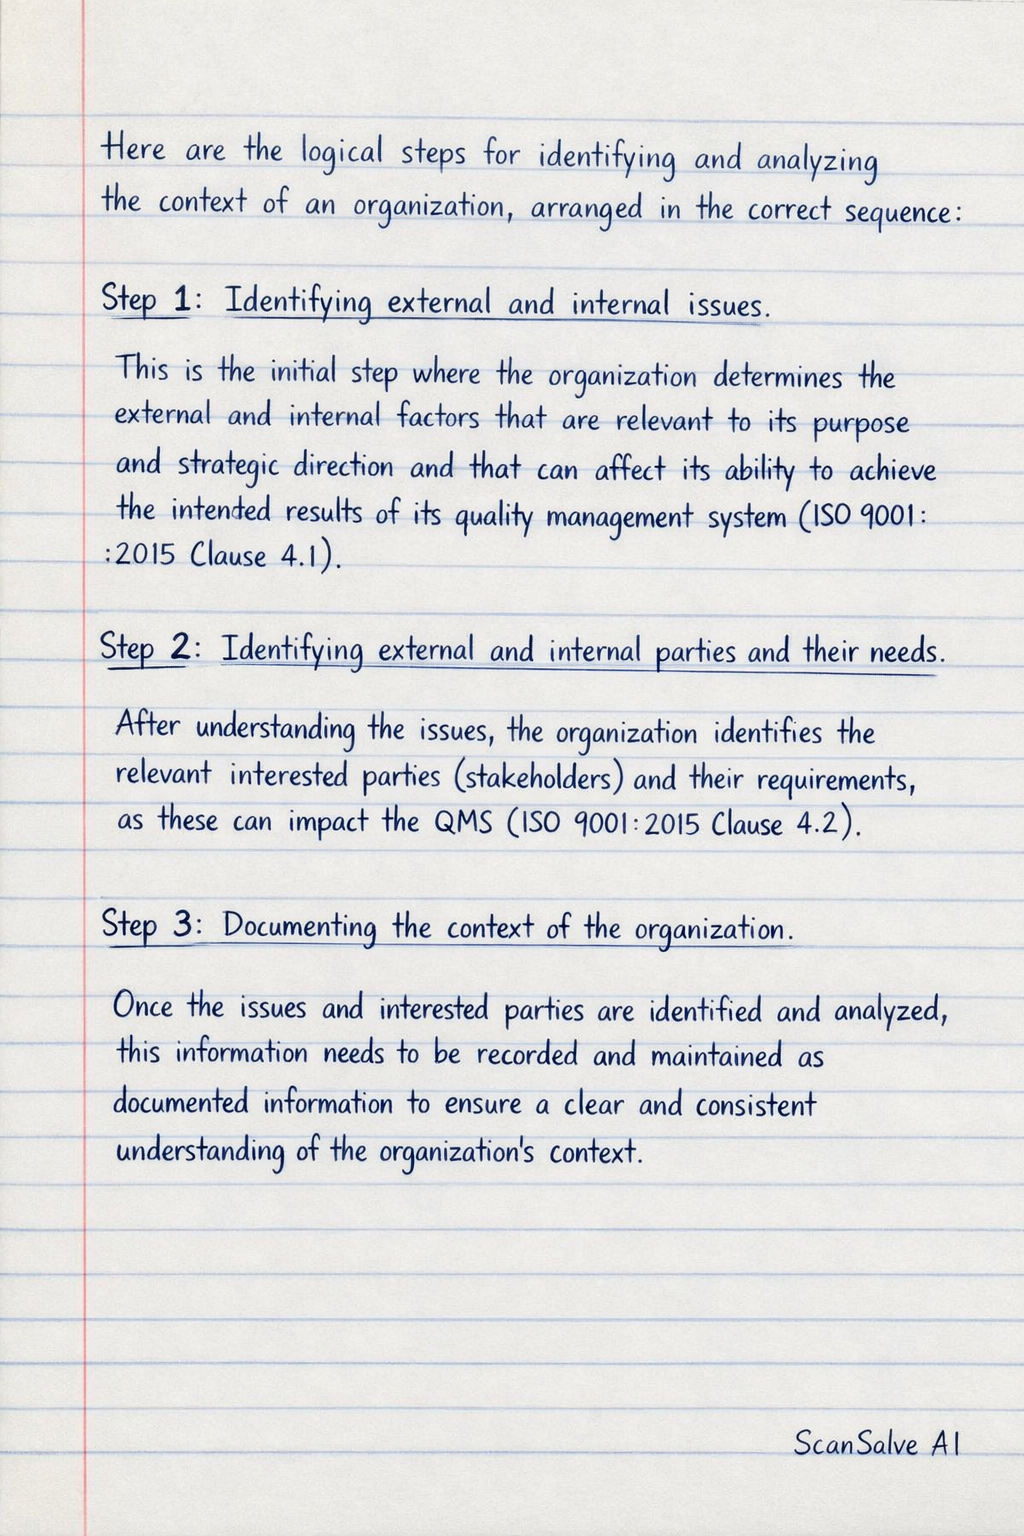 Here are the logical steps for identifying and analyzing
the context of an organization, arranged in the correct sequence:
Step 1: Identifying external and internal issues.
This is the initial step where the organization determines the
external and internal factors that are relevant to its purpose
and strategic direction and that can affect its ability to achieve
the intended results of its quality management system (ISO 9001:
:2015 Clause 4.1).
Step 2: Identifying external and internal parties and their needs.
After understanding the issues, the organization identifies the
relevant interested parties (stakeholders) and their requirements,
as these can impact the QMS (ISO 9001:2015 Clause 4.2).
Step 3: Documenting the context of the organization.
Once the issues and interested parties are identified and analyzed,
this information needs to be recorded and maintained as
documented information to ensure a clear and consistent
understanding of the organization's context.
ScanSalve AI